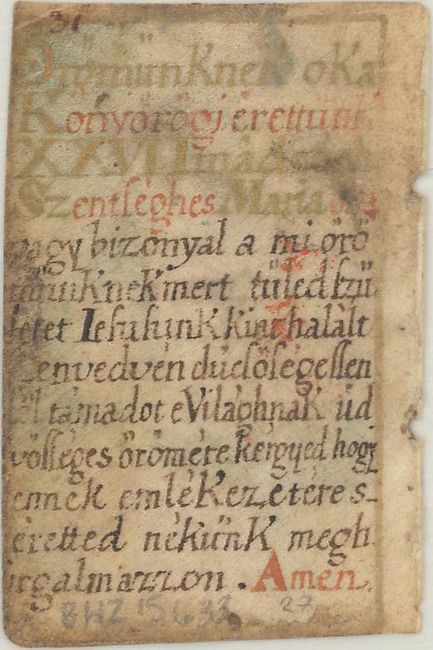 31
Örömünknek oka
Könyörögj érettünk
XXVII Imádság
Szentséghes Mária
vagy bizonyal a mi örö
münknek mert tüled szü
letet Iesusunk kint halált
szenvedvén düčösségessen
föl támadot e Világhnak üd
vösséges örömére kérgyed hogy
ennek emlékezetére s
éretted nékünk megh
irgalmazzon . Amen.
27